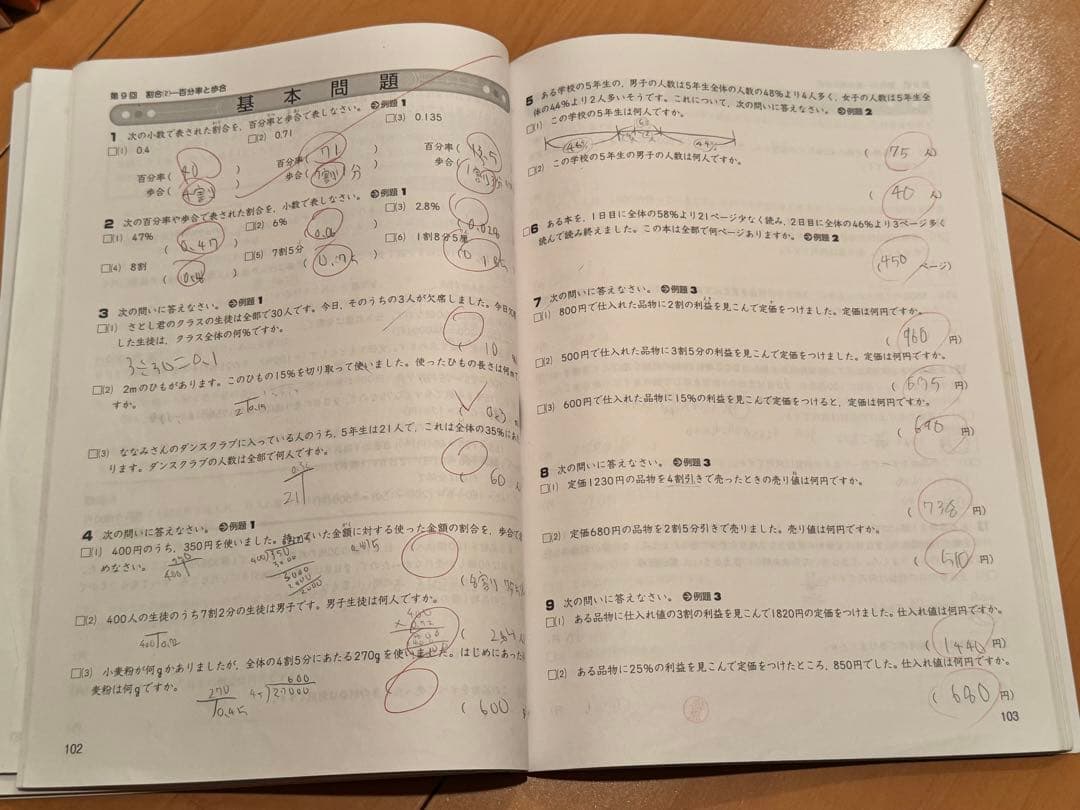 第9回 割合(2)―百分率と歩合
基本問題
1 次の小数で表された割合を、百分率と歩合で表しなさい。 例題1
□(1) 0.4
□(2) 0.71
□(3) 0.135
百分率( 40 )
百分率( 71 )
百分率( 13.5
歩合( 4割 )
歩合( 7割1分
歩合(
2 次の百分率や歩合で表された割合を、小数で表しなさい。 例題1
□(1) 47%
□(2) 6%
□(3) 2.8%
( 0.47 )
□(4) 8割
□(5) 7割5分
□(6) 1割8分5厘
3 次の問いに答えなさい。 例題1
□(1) さとし君のクラスの生徒は全部で30人です。今日、そのうちの3人が欠席しました。今日欠席
した生徒は、クラス全体の何%ですか。
3÷30=0.1
10
□(2) 2mのひもがあります。このひもの15%を切り取って使いました。使ったひもの長さは何m
すか。
2 0.15
□(3) ななみさんのダンスクラブに入っている人のうち、5年生は21人で、これは全体の35%にあ
ります。ダンスクラブの人数は全部で何人ですか。
21
( 60 人
4 次の問いに答えなさい。 例題1
□(1) 400円のうち、350円を使いました。
いた金額に対する使った金額の割合を、歩合で
めなさい。
□(2) 400人の生徒のうち7割2分の生徒は男子です。男子生徒は何人ですか。
400 0.72
□(3) 小麦粉が何gかありましたが、全体の4割5分にあたる270gを使いました。はじめにあった
麦粉は何gですか。
270
0.45
600
45 27000
( 600
102
5 ある学校の5年生の、男子の人数は5年生全体の人数の48%より4人多く、女子の人数は5年生全
体の44%より2人多いそうです。これについて、次の問いに答えなさい。 例題2
□(1) この学校の5年生は何人ですか。
( 75 人
□(2) この学校の5年生の男子の人数は何人ですか。
( 40 人
□6 ある本を、1日目に全体の58%より21ページ少なく読み、2日目に全体の46%より3ページ多く
読んで読み終えました。この本は全部で何ページありますか。 例題2
( 450 ページ)
7 次の問いに答えなさい。 例題3
□(1) 800円で仕入れた品物に2割の利益を見こんで定価をつけました。定価は何円ですか。
( 960 円)
□(2) 500円で仕入れた品物に3割5分の利益を見こんで定価をつけました。定価は何円ですか。
( 675 円)
□(3) 600円で仕入れた品物に15%の利益を見こんで定価をつけると、定価は何円ですか。
( 690 円)
8 次の問いに答えなさい。 例題3
□(1) 定価1230円の品物を4割引きで売ったときの売り値は何円ですか。
( 738 円)
□(2) 定価680円の品物を2割5分引きで売りました。売り値は何円ですか。
( 510 円)
9 次の問いに答えなさい。 例題3
□(1) ある品物に仕入れ値の3割の利益を見こんで1820円の定価をつけました。仕入れ値は何円ですか。
( 1440 円)
□(2) ある品物に25%の利益を見こんで定価をつけたところ、850円でした。仕入れ値は何円ですか。
( 680 円)
103